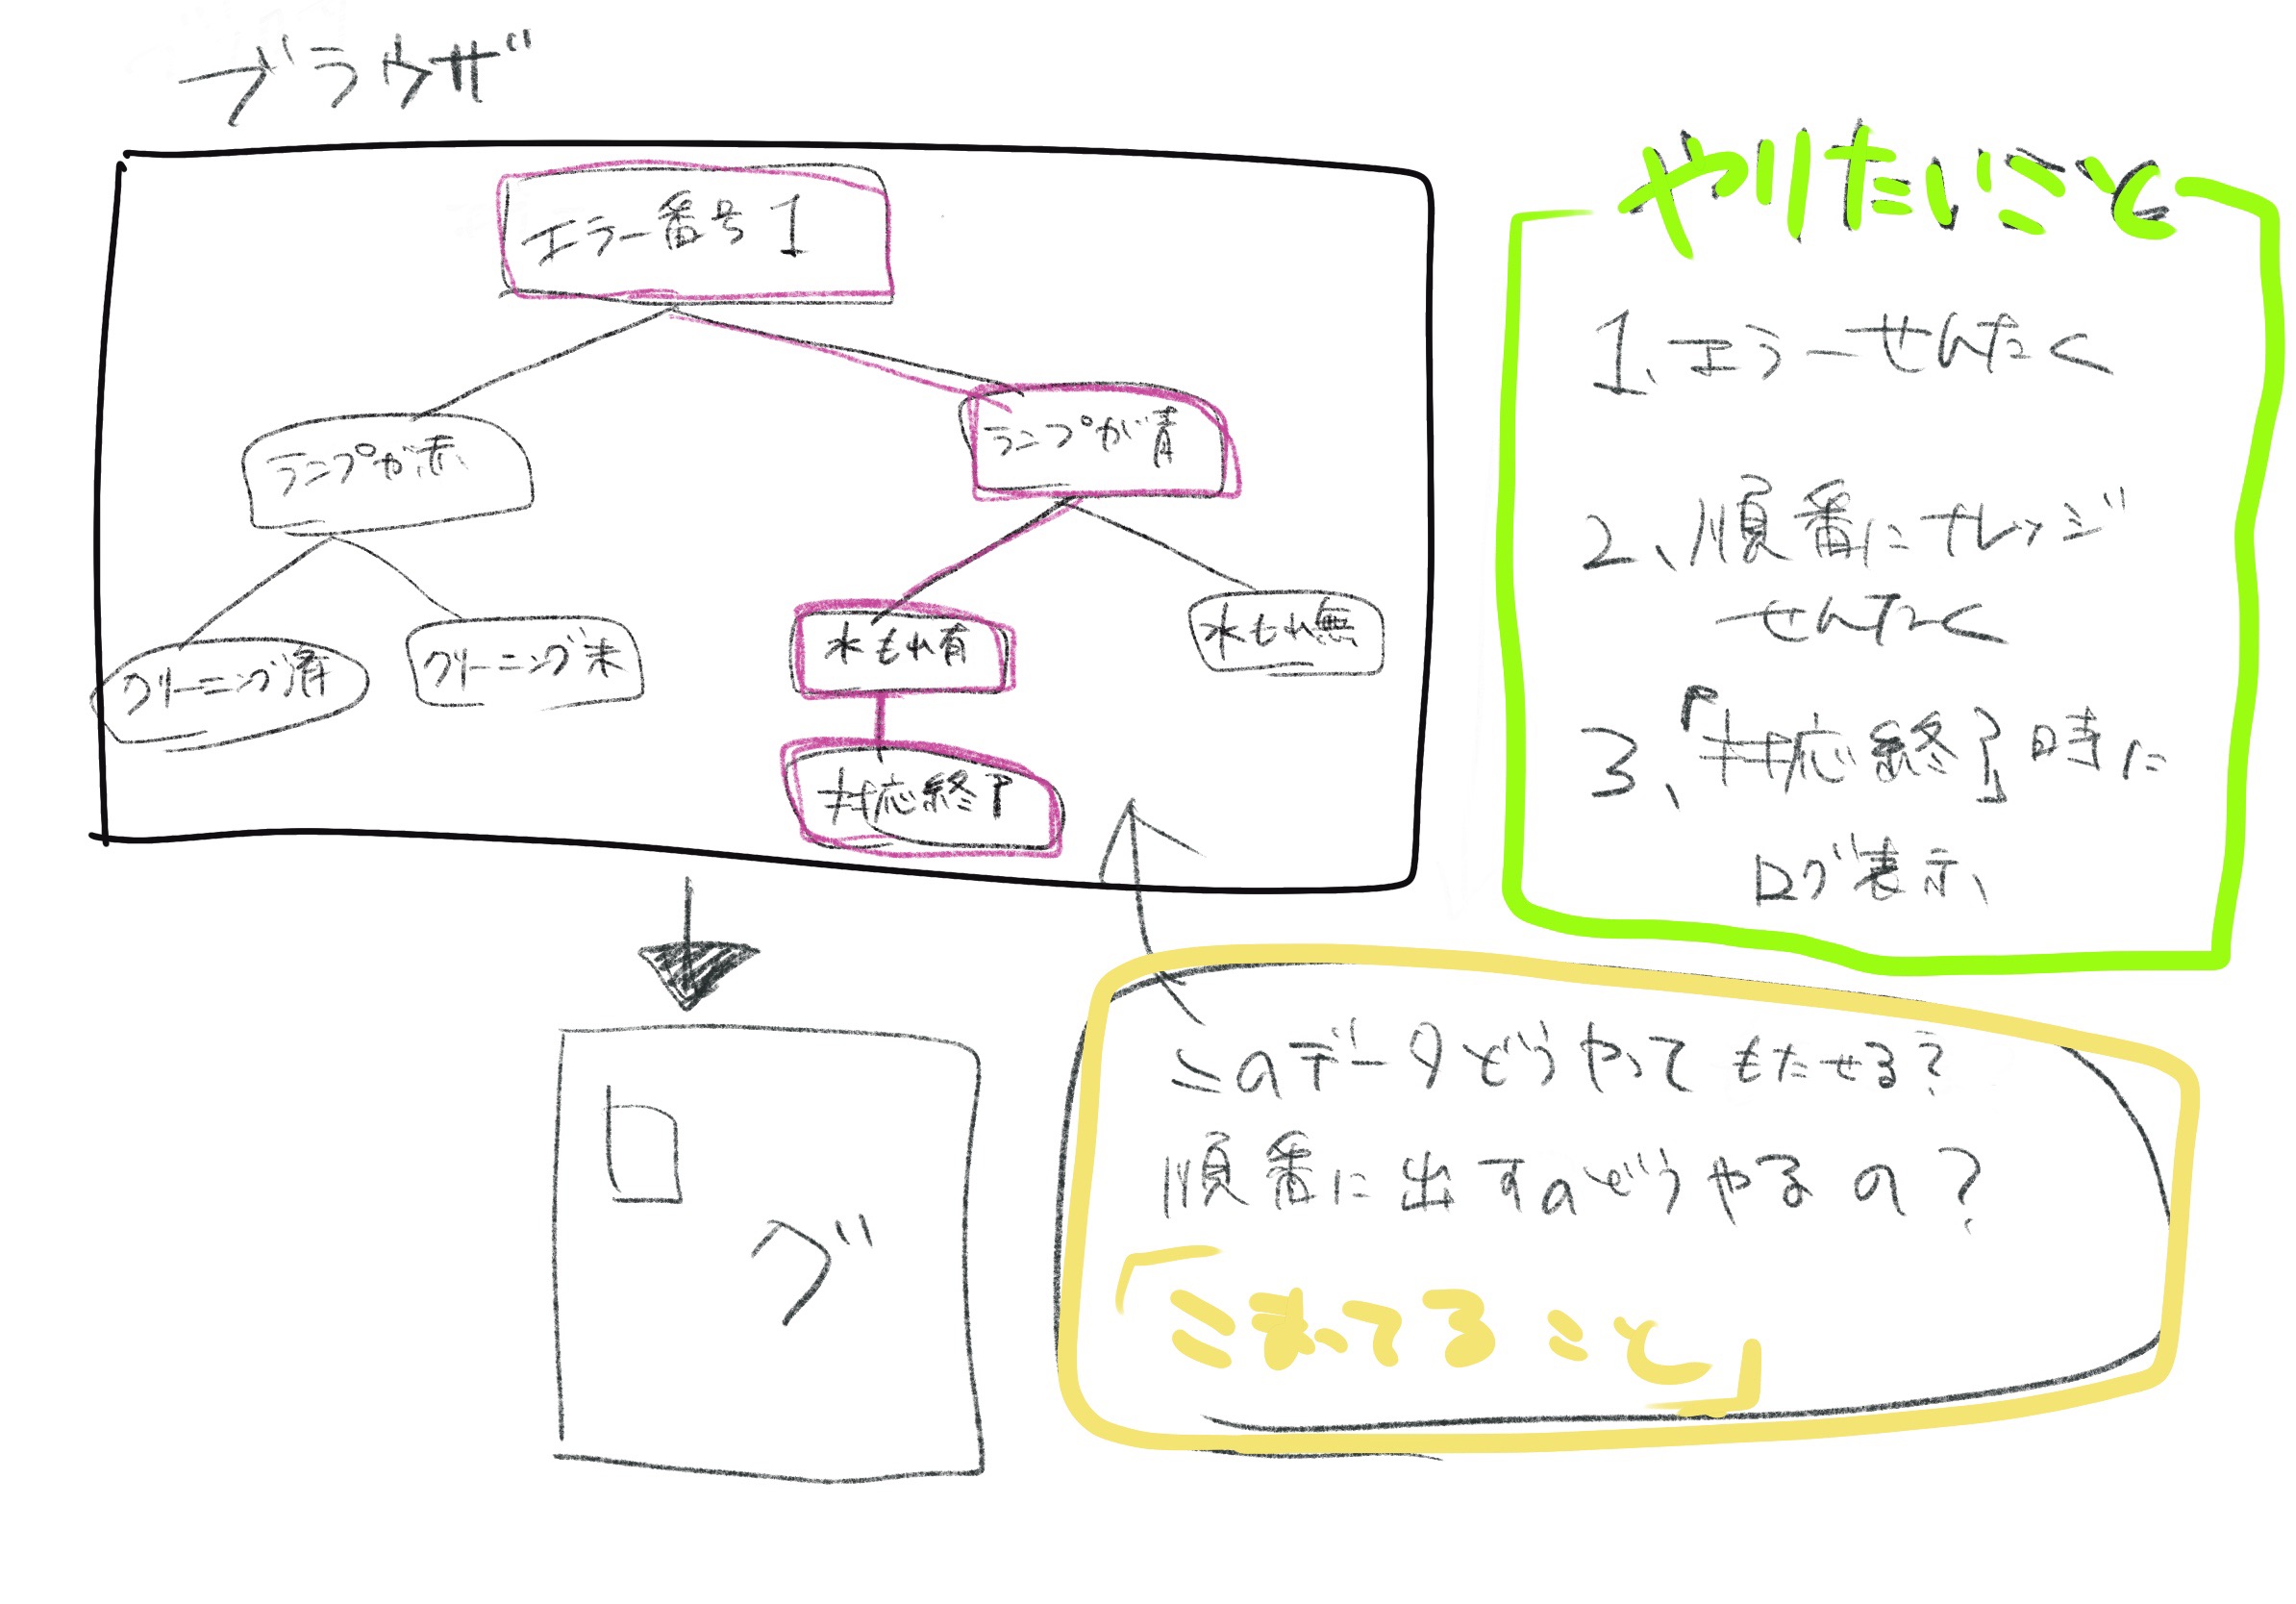 ブラウザ
エラー番号1
ランプが赤
ランプが青
クリーニング済
クリーニング未
水もれ有
水もれ無
対応終了
ログ
やりたいこと
1、エラーせんたく
2、順番にナレッジ
せんたく
3、「対応終了」時に
ログ表示、
このデータどうやってもたせる?
順番に出すのどうやるの?
「こまってること」